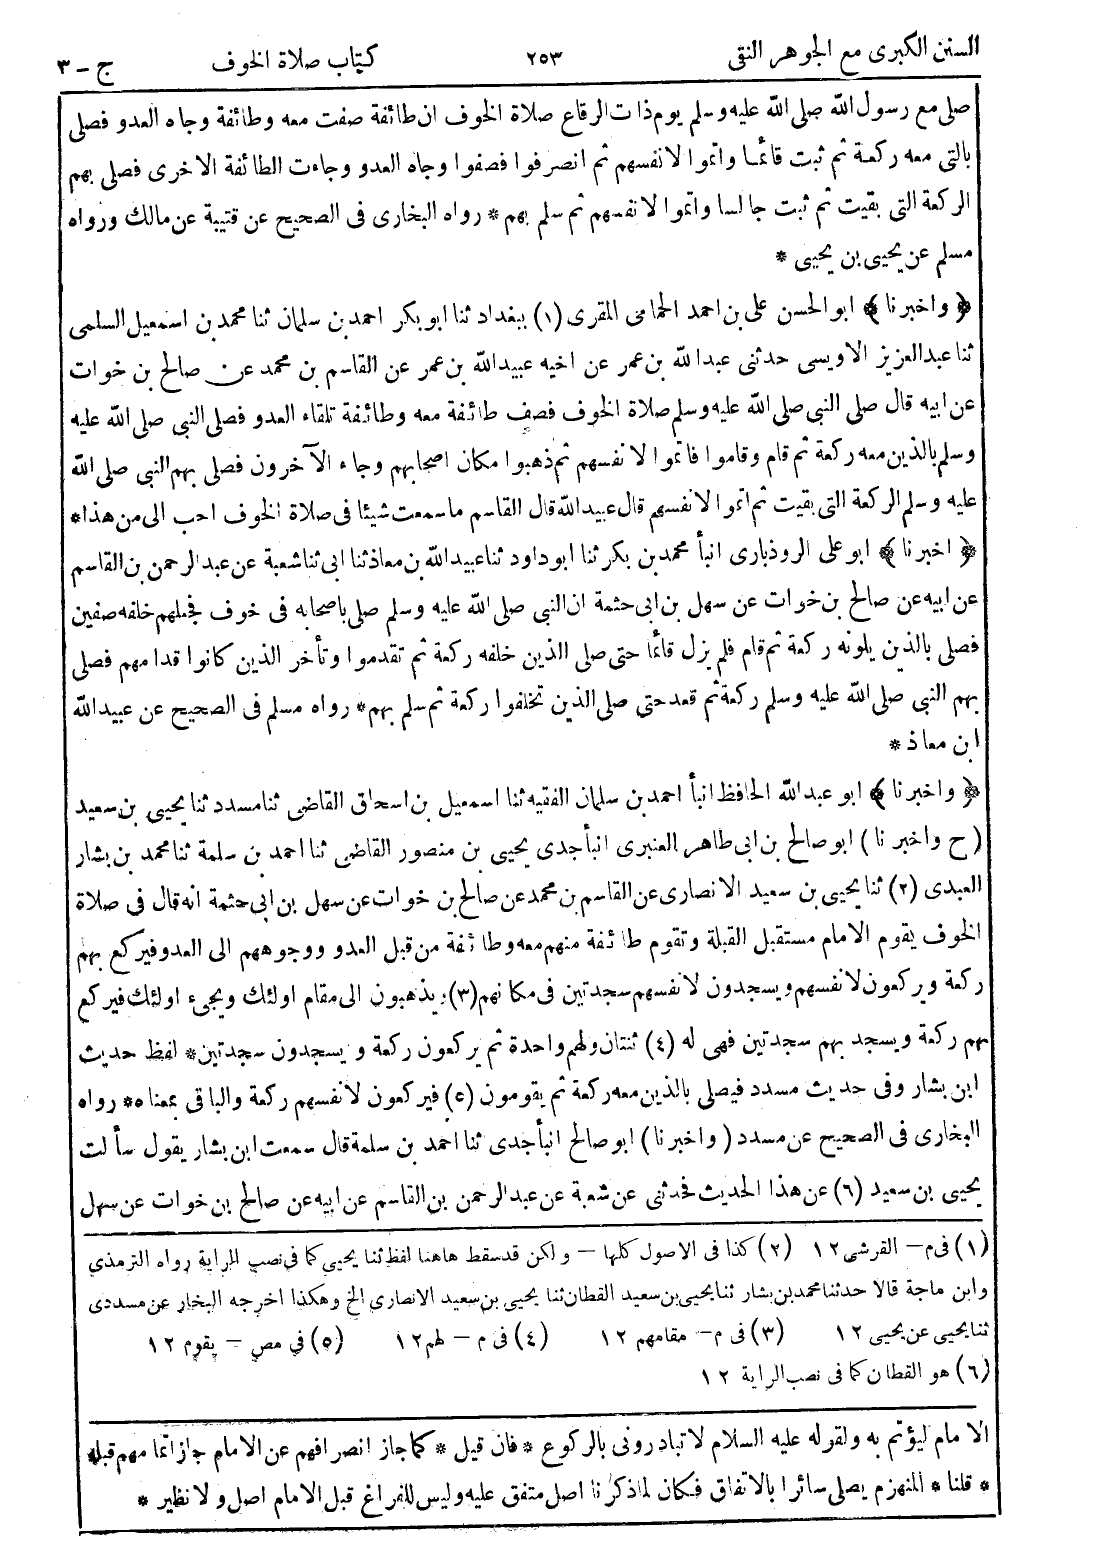 السنن الكبرى مع الجوهر النقى ٢٥٣ كتاب صلاة الخوف ج - ٣
صلى مع رسول الله صلى الله عليه وسلم يوم ذات الرقاع صلاة الخوف ان طائفة صفت معه وطائفة وجاه العدو فصلى
بالتى معه ركعة ثم ثبت قائما واتموا لانفسهم ثم انصرفوا فصفوا وجاه العدو وجاءت الطائفة الاخرى فصلى بهم
الركعة التى بقيت ثم ثبت جالسا واتموا لانفسهم ثم سلم بهم * رواه البخارى فى الصحيح عن قتيبة عن مالك ورواه
مسلم عن يحيى بن يحيى *
﴿ واخبرنا ﴾ ابو الحسن على بن احمد الحمامى المقرى (١) ببغداد ثنا ابو بكر احمد بن سلمان ثنا محمد بن اسمعيل السلمى
ثنا عبدالعزيز الاويسى حدثنى عبد الله بن عمر عن اخيه عبيدالله بن عمر عن القاسم بن محمد عن صالح بن خوات
عن ابيه قال صلى النبى صلى الله عليه وسلم صلاة الخوف فصف طائفة معه وطائفة تلقاء العدو فصلى النبى صلى الله عليه
وسلم بالذين معه ركعة ثم قام وقاموا فاتموا لانفسهم ثم ذهبوا مكان اصحابهم وجاء الآخرون فصلى بهم النبى صلى الله
عليه وسلم الركعة التى بقيت ثم اتموا لانفسهم قال عبيدالله قال القاسم ما سمعت شيئا فى صلاة الخوف احب الى من هذا *
﴿ اخبرنا ﴾ ابو على الروذبارى انبأ محمد بن بكر ثنا ابو داود ثنا عبيد الله بن معاذ ثنا ابى ثنا شعبة عن عبد الرحمن بن القاسم
عن ابيه عن صالح بن خوات عن سهل بن ابى حثمة ان النبى صلى الله عليه وسلم صلى باصحابه فى خوف فجعلهم خلفه صفين
فصلى بالذين يلونه ركعة ثم قام فلم يزل قائما حتى صلى الذين خلفه ركعة ثم تقدموا وتأخر الذين كانوا قدامهم فصلى
بهم النبى صلى الله عليه وسلم ركعة ثم قعد حتى صلى الذين تخلفوا ركعة ثم سلم بهم * رواه مسلم فى الصحيح عن عبيدالله
ابن معاذ *
﴿ واخبرنا ﴾ ابو عبد الله الحافظ انبأ احمد بن سلمان الفقيه ثنا اسمعيل بن اسحاق القاضى ثنا مسدد ثنا يحيى بن سعيد
(ح واخبرنا) ابو صالح بن ابى طاهر العنبرى انبأ جدى يحيى بن منصور القاضى ثنا احمد بن سلمة ثنا محمد بن بشار
العبدى (٢) ثنا يحيى بن سعيد الانصارى عن القاسم بن محمد عن صالح بن خوات عن سهل بن ابى حثمة انه قال فى صلاة
الخوف يقوم الامام مستقبل القبلة وتقوم طائفة منهم معه وطائفة من قبل العدو ووجوههم الى العدو فيركع بهم
ركعة ويركعون لانفسهم ويسجدون لانفسهم سجدتين فى مكانهم (٣) ويذهبون الى مقام اولئك ويجىء اولئك فيركع
بهم ركعة ويسجد بهم سجدتين فهى له (٤) ثنتان ولهم واحدة ثم يركعون ركعة ويسجدون سجدتين * لفظ حديث
ابن بشار وفى حديث مسدد فيصلى بالذين معه ركعة ثم يقومون (٥) فيركعون لانفسهم ركعة والباقى بمعناه * رواه
البخارى فى الصحيح عن مسدد (واخبرنا) ابو صالح انبأ جدى ثنا احمد بن سلمة قال سمعت ابن بشار يقول سألت
يحيى بن سعيد (٦) عن هذا الحديث فحدثنى عن شعبة عن عبدالرحمن بن القاسم عن ابيه عن صالح بن خوات عن سهل
(١) فى م - القرشى ١٢ (٢) كذا فى الاصول كلها - ولكن قد سقط هاهنا لفظ ثنا يحيى كما فى نصب الراية رواه الترمذي
وابن ماجة قالا حدثنا محمد بن بشار ثنا يحيى بن سعيد القطان ثنا يحيى بن سعيد الانصاري الخ وهكذا اخرجه البخار عن مسددى
ثنا يحيى عن يحيى ١٢ (٣) فى م - مقامهم ١٢ (٤) فى م - لهم ١٢ (٥) في مص - يقوم ١٢
(٦) هو القطان كما فى نصب الراية ١٢
الامام ليؤتم به ولقوله عليه السلام لا تبادرونى بالركوع * فان قيل * كما جاز انصرافهم عن الامام جاز اتمامهم قبله *
* قلنا * المنهزم يصلى سائرا بالاتفاق فكان لما ذكرنا اصل متفق عليه وليس للفراغ قبل الامام اصل ولا نظير *